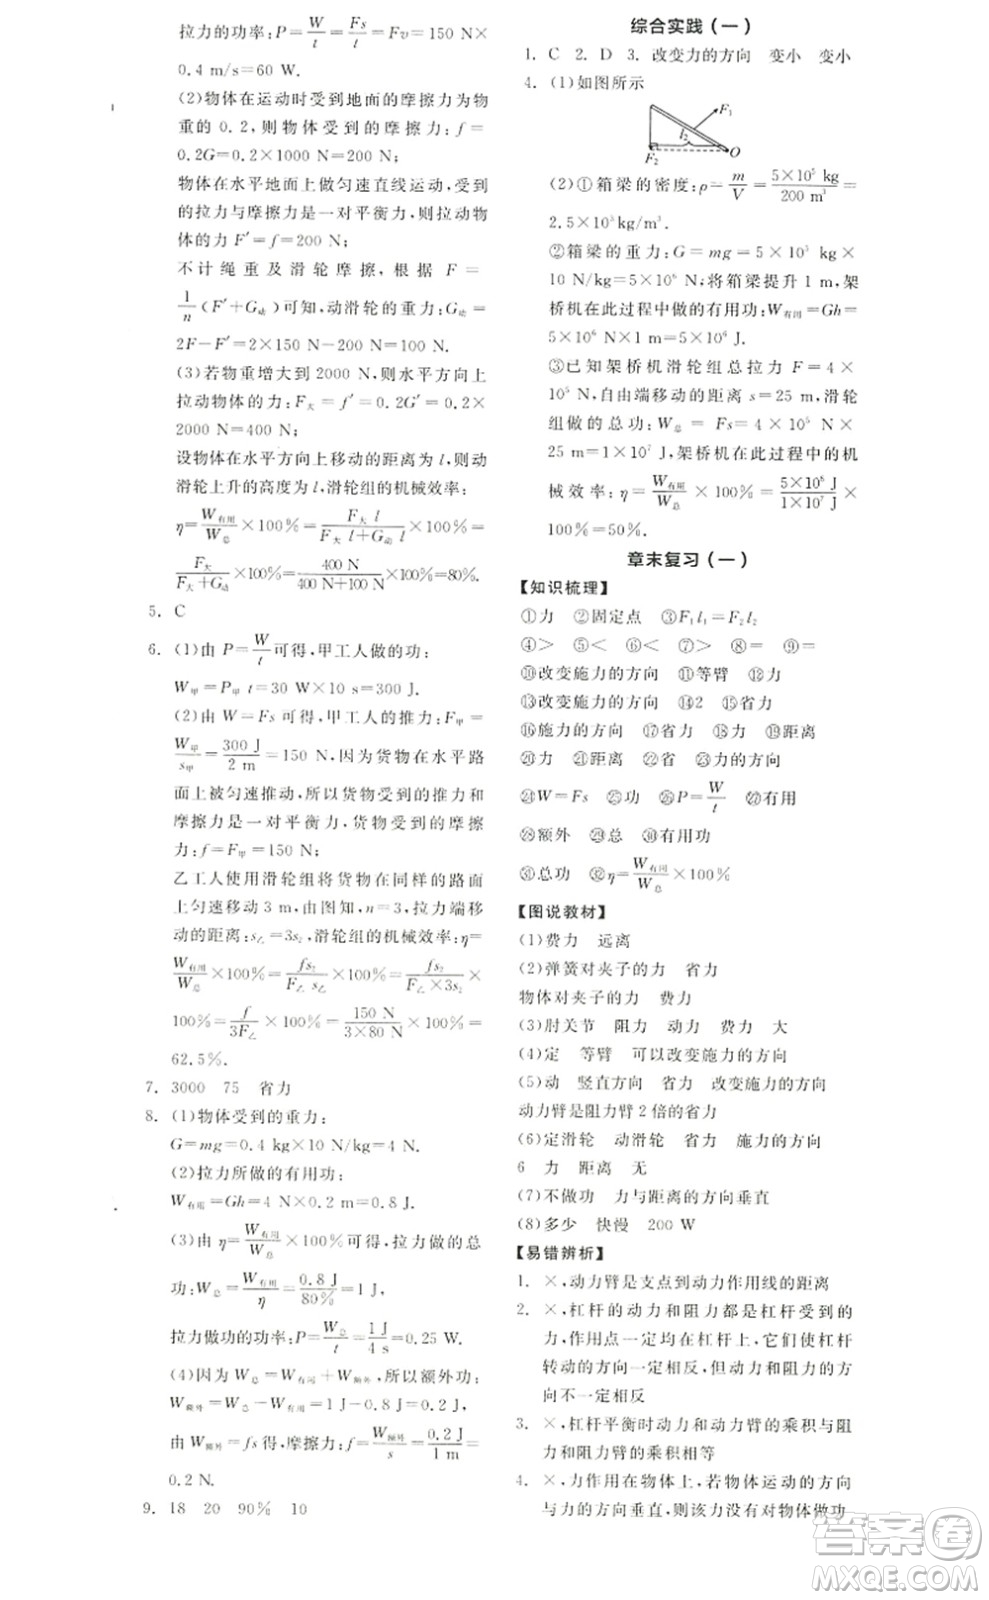 拉力的功率:P=W/t=Fs/t=Fv=150 N×
0.4 m/s=60 W.
(2)物体在运动时受到地面的摩擦力为物
重的 0.2,则物体受到的摩擦力:f=
0.2G=0.2×1000 N=200 N;
物体在水平地面上做匀速直线运动,受到
的拉力与摩擦力是一对平衡力,则拉动物
体的力 F′=f=200 N;
不计绳重及滑轮摩擦,根据 F=
1/n(F′+G动)可知,动滑轮的重力:G动=
2F-F′=2×150 N-200 N=100 N.
(3)若物重增大到 2000 N,则水平方向上
拉动物体的力:F大=f′=0.2G′=0.2×
2000 N=400 N;
设物体在水平方向上移动的距离为 l,则动
滑轮上升的高度为 l,滑轮组的机械效率:
η=W有用/W总×100%=F大 l/(F大 l+G动 l)×100%=
F大/(F大+G动)×100%=400 N/(400 N+100 N)×100%=80%.
5. C
6. (1)由 P=W/t可得,甲工人做的功:
W甲=P甲 t=30 W×10 s=300 J.
(2)由 W=Fs 可得,甲工人的推力:F甲=
W甲/s甲=300 J/2 m=150 N,因为货物在水平路
面上被匀速推动,所以货物受到的推力和
摩擦力是一对平衡力,货物受到的摩擦
力:f=F甲=150 N;
乙工人使用滑轮组将货物在同样的路面
上匀速移动 3 m,由图知,n=3,拉力端移
动的距离:s乙=3s2,滑轮组的机械效率:η=
W有用/W总×100%=fs2/(F乙 s乙)×100%=fs2/(F乙×3s2)×
100%=f/3F乙×100%=150 N/(3×80 N)×100%=
62.5%.
7. 3000 75 省力
8. (1)物体受到的重力:
G=mg=0.4 kg×10 N/kg=4 N.
(2)拉力所做的有用功:
W有用=Gh=4 N×0.2 m=0.8 J.
(3)由 η=W有用/W总×100%可得,拉力做的总
功:W总=W有用/η=0.8 J/80%=1 J,
拉力做功的功率:P=W总/t=1 J/4 s=0.25 W.
(4)因为 W总=W有用+W额外,所以额外功:
W额外=W总-W有用=1 J-0.8 J=0.2 J,
由 W额外=fs 得,摩擦力:f=W额外/s=0.2 J/1 m=
0.2 N.
9. 18 20 90% 10
综合实践(一)
1. C 2. D 3. 改变力的方向 变小 变小
4. (1)如图所示
F1
l2
F2
O
(2)①箱梁的密度:ρ=m/V=5×10⁵ kg/200 m³=
2.5×10³kg/m³.
②箱梁的重力:G=mg=5×10⁵ kg×
10 N/kg=5×10⁶ N;将箱梁提升 1 m,架
桥机在此过程中做的有用功:W有用=Gh=
5×10⁶ N×1 m=5×10⁶ J.
③已知架桥机滑轮组总拉力 F=4×
10⁵ N,自由端移动的距离 s=25 m,滑轮
组做的总功:W总=Fs=4×10⁵ N×
25 m=1×10⁷ J,架桥机在此过程中的机
械效率:η=W有用/W总×100%=5×10⁶ J/1×10⁷ J×
100%=50%.
章末复习(一)
【知识梳理】
①力 ②固定点 ③F1l1=F2l2
④> ⑤< ⑥< ⑦> ⑧= ⑨=
⑩改变施力的方向 ⑪等臂 ⑫力
⑬改变施力的方向 ⑭2 ⑮省力
⑯施力的方向 ⑰省力 ⑱距离 ⑲2
⑳力 ㉑距离 ㉒省 ㉓力的方向
㉔W=Fs ㉕功 ㉖P=W/t ㉗有用
㉘额外 ㉙总 ㉚有用功
㉛总功 ㉜η=W有用/W总×100%
【图说教材】
(1)费力 远离
(2)弹簧对夹子的力 省力
物体对夹子的力 费力
(3)肘关节 阻力 动力 费力 大
(4)定 等臂 可以改变施力的方向
(5)动 竖直方向 省力 改变施力的方向
动力臂是阻力臂2倍的省力
(6)定滑轮 动滑轮 省力 施力的方向
6 力 距离 无
(7)不做功 力与距离的方向垂直
(8)多少 快慢 200 W
【易错辨析】
1. ×,动力臂是支点到动力作用线的距离
2. ×,杠杆的动力和阻力都是杠杆受到的
力,作用点一定均在杠杆上,它们使杠杆
转动的方向一定相反,但动力和阻力的方
向不一定相反
3. ×,杠杆平衡时动力和动力臂的乘积与阻
力和阻力臂的乘积相等
4. ×,力作用在物体上,若物体运动的方向
与力的方向垂直,则该力没有对物体做功
答案圈
MXQE.COM